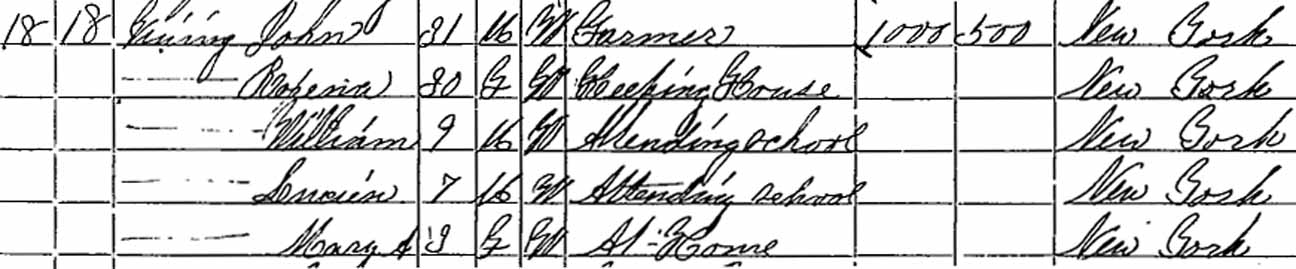 18 18 Vining John 31 M W Farmer 1000 500 New York
— Rosena 30 F W Keeping House New York
— William 9 M W Attending school New York
— Lucien 7 M W Attending school New York
— Mary A 3 F W At-Home New York